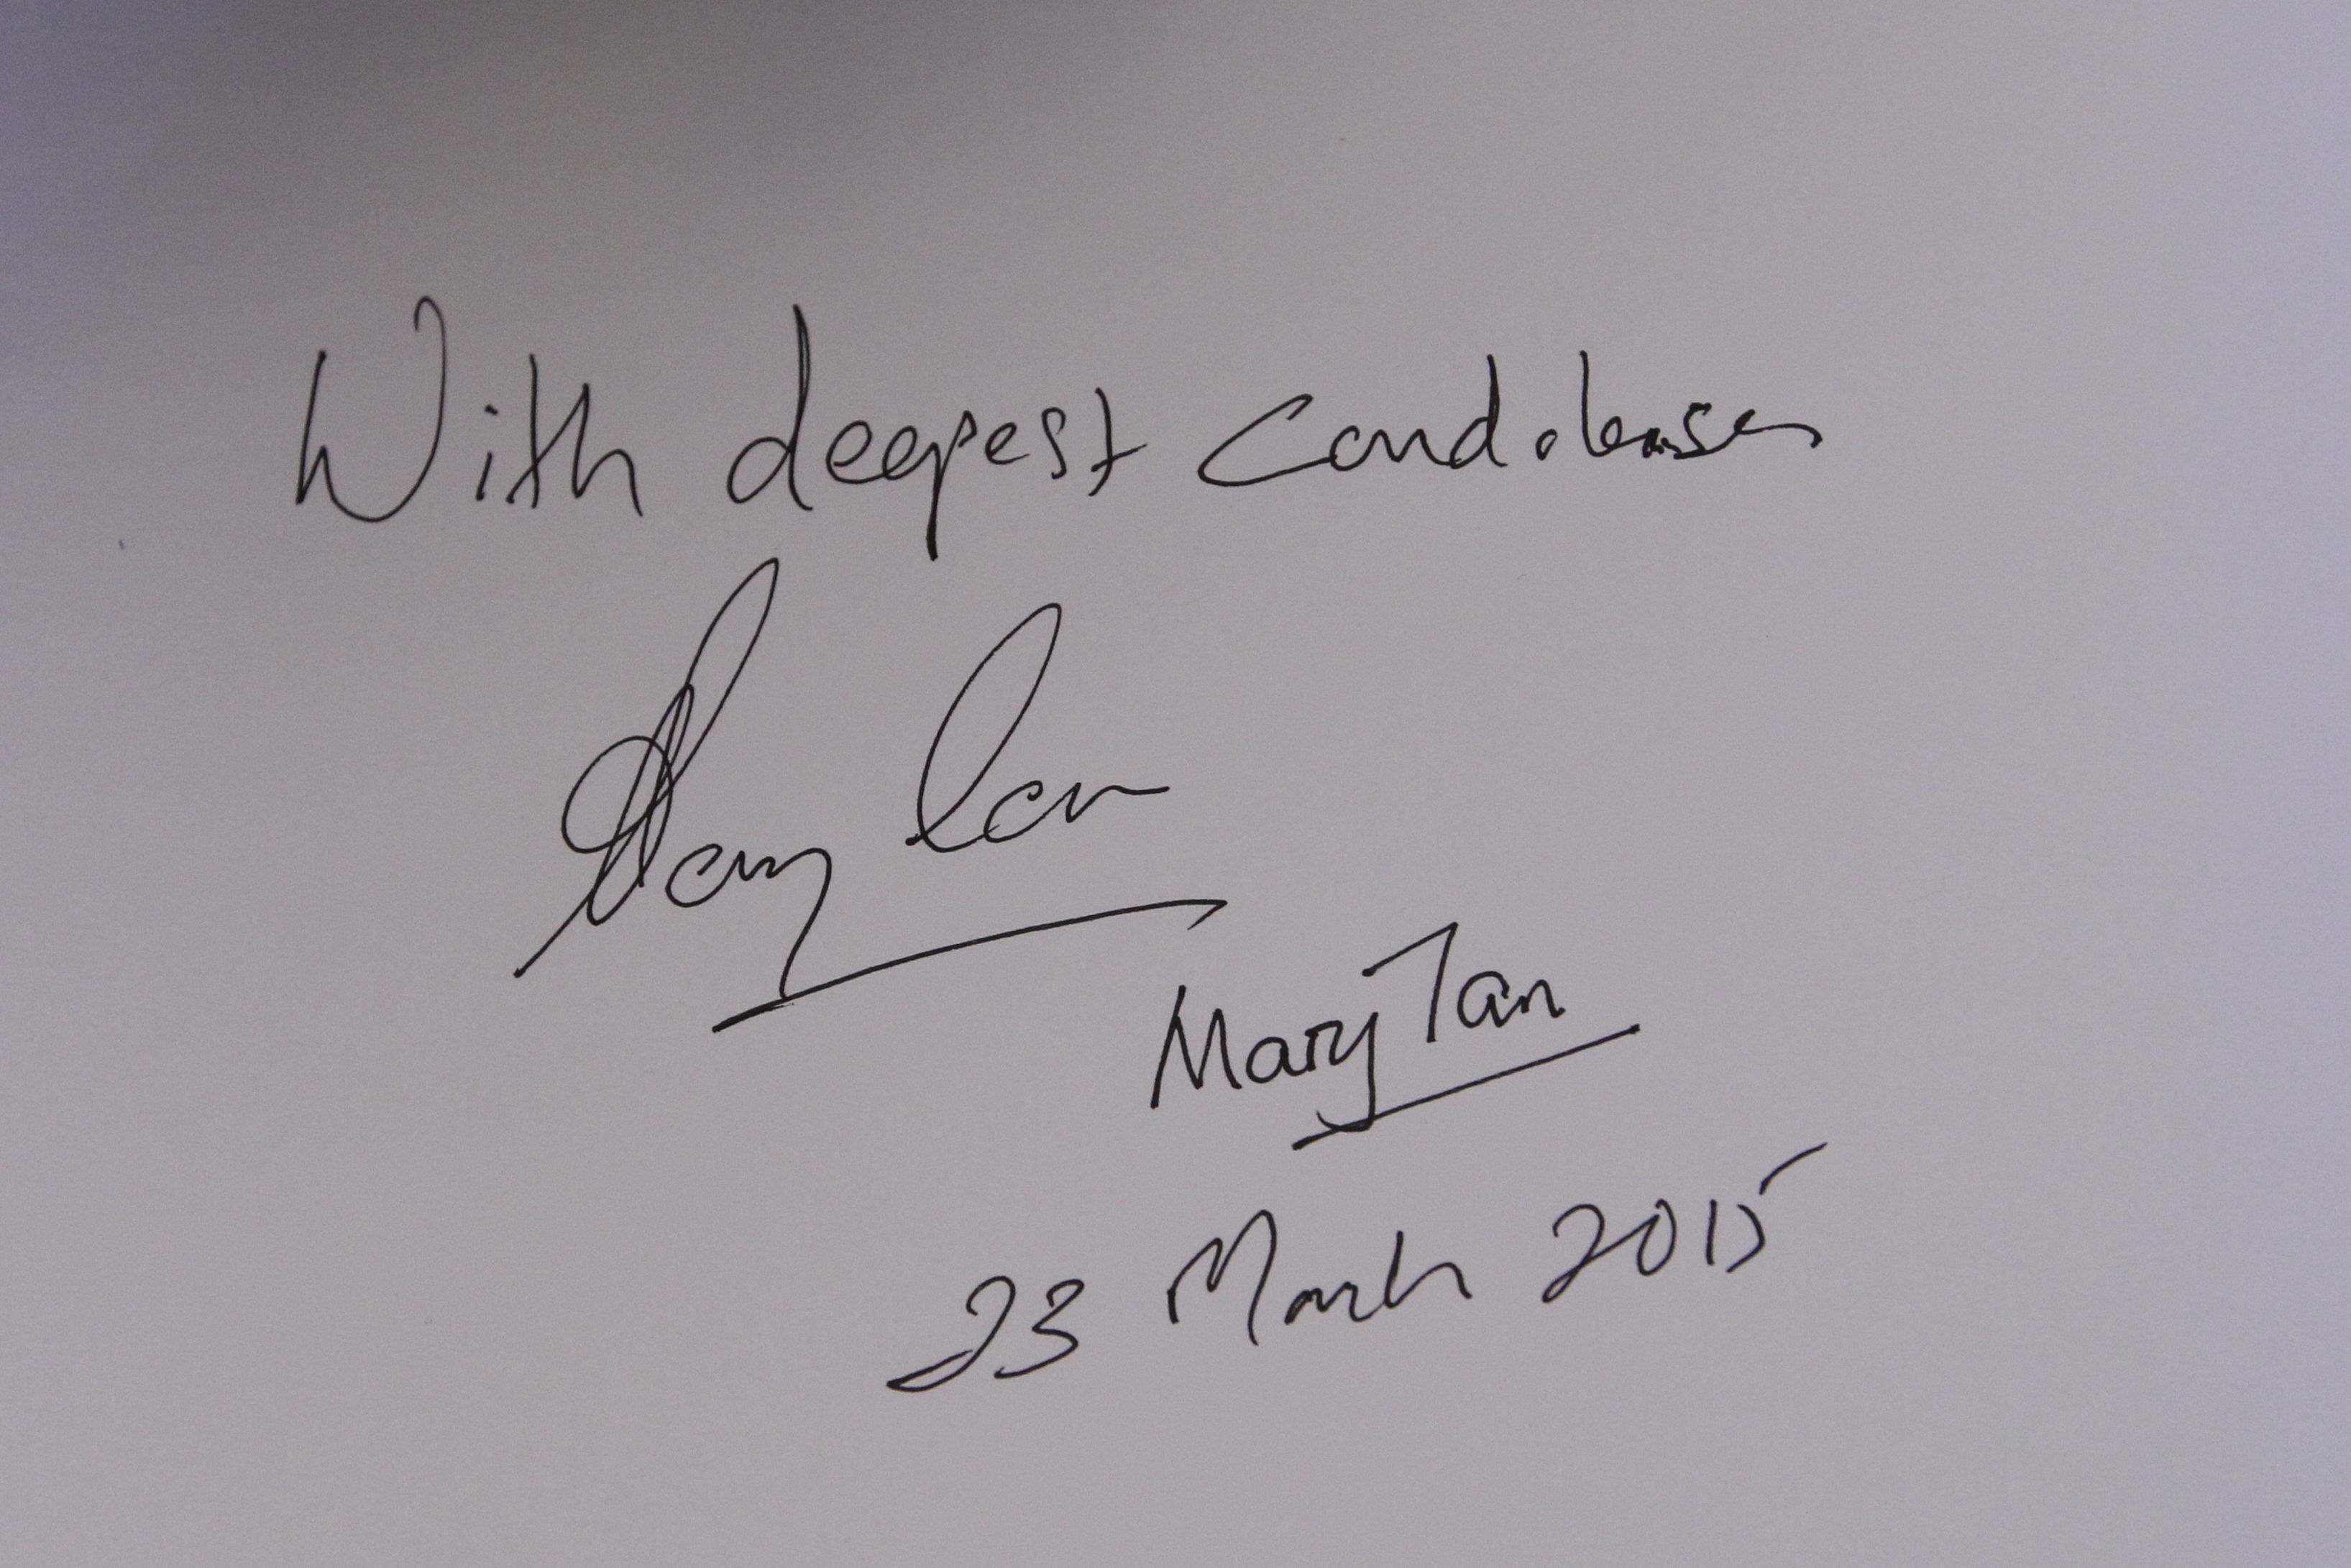 With deepest condolenses
Mary Tan
23 March 2015